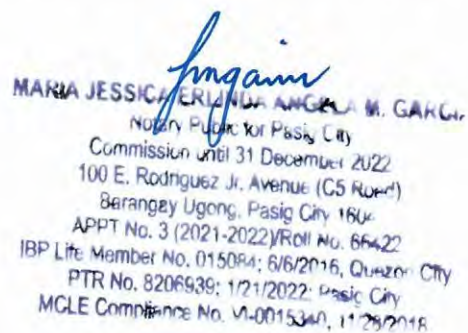 MARIA JESSICA ERLINDA ANGELA M. GARCIA
Notary Public for Pasig City
Commission until 31 December 2022
100 E. Rodriguez Jr. Avenue (C5 Road)
Barangay Ugong, Pasig City 1604
APPT No. 3 (2021-2022)/Roll No. 66422
IBP Life Member No. 015084; 6/6/2016, Quezon City
PTR No. 8206939; 1/21/2022; Pasig City
MCLE Compliance No. VI-0015340, 11/28/2018